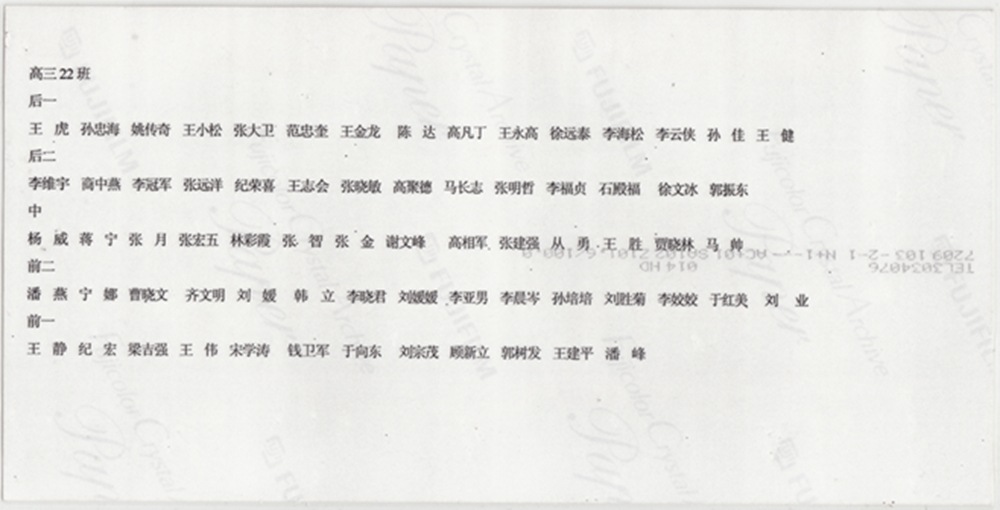 高三22班
后一
王 虎 孙忠海 姚传奇 王小松 张大卫 范忠奎 王金龙 陈 达 高凡丁 王永高 徐远泰 李海松 李云侠 孙 佳 王 健
后二
李维宇 商中燕 李冠军 张远洋 纪荣喜 王志会 张晓敏 高聚德 马长志 张明哲 李福贞 石殿福 徐文冰 郭振东
中
杨 威 蒋 宁 张 月 张宏五 林彩霞 张 智 张 金 谢文峰 高相军 张建强 丛 勇 王 胜 贾晓林 马 帅
前二
潘 燕 宁 娜 曹晓文 齐文明 刘 媛 韩 立 李晓君 刘媛媛 李亚男 李晨岑 孙培培 刘胜菊 李姣姣 于红美 刘 业
前一
王 静 纪 宏 梁吉强 王 伟 宋学涛 钱卫军 于向东 刘宗茂 顾新立 郭树发 王建平 潘 峰
FUJIFILM
Fujicolor Crystal Archive